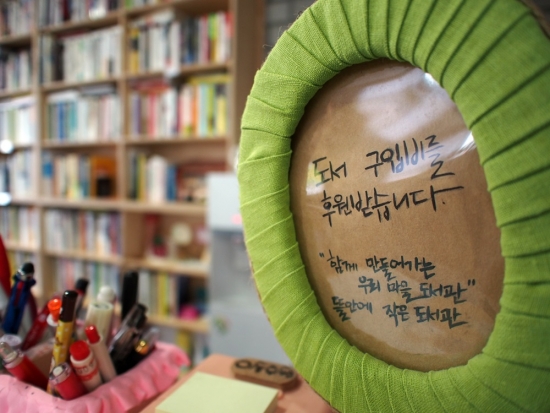 도서 구입비를
후원받습니다.
"함께 만들어가는
우리 마을 도서관"
뜰안에 작은 도서관